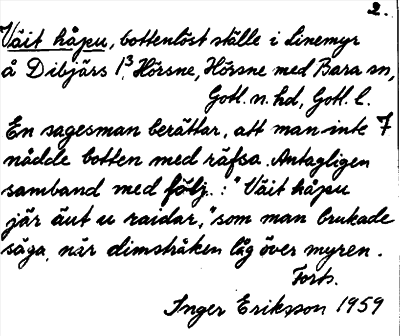 2.
Väit håpu, bottenlöst ställe i Linemyr
å Dibjärs 1³ Hörsne, Hörsne med Bara sn,
Gotl. n. hd, Gotl. l.
En sagesman berättar, att man inte 7
nådde botten med räfsa. Antagligen
samband med följ.: "Väit håpu
jär äut u raidar," som man brukade
säga, när dimstråken låg över myren.
Forts.
Inger Eriksson 1959